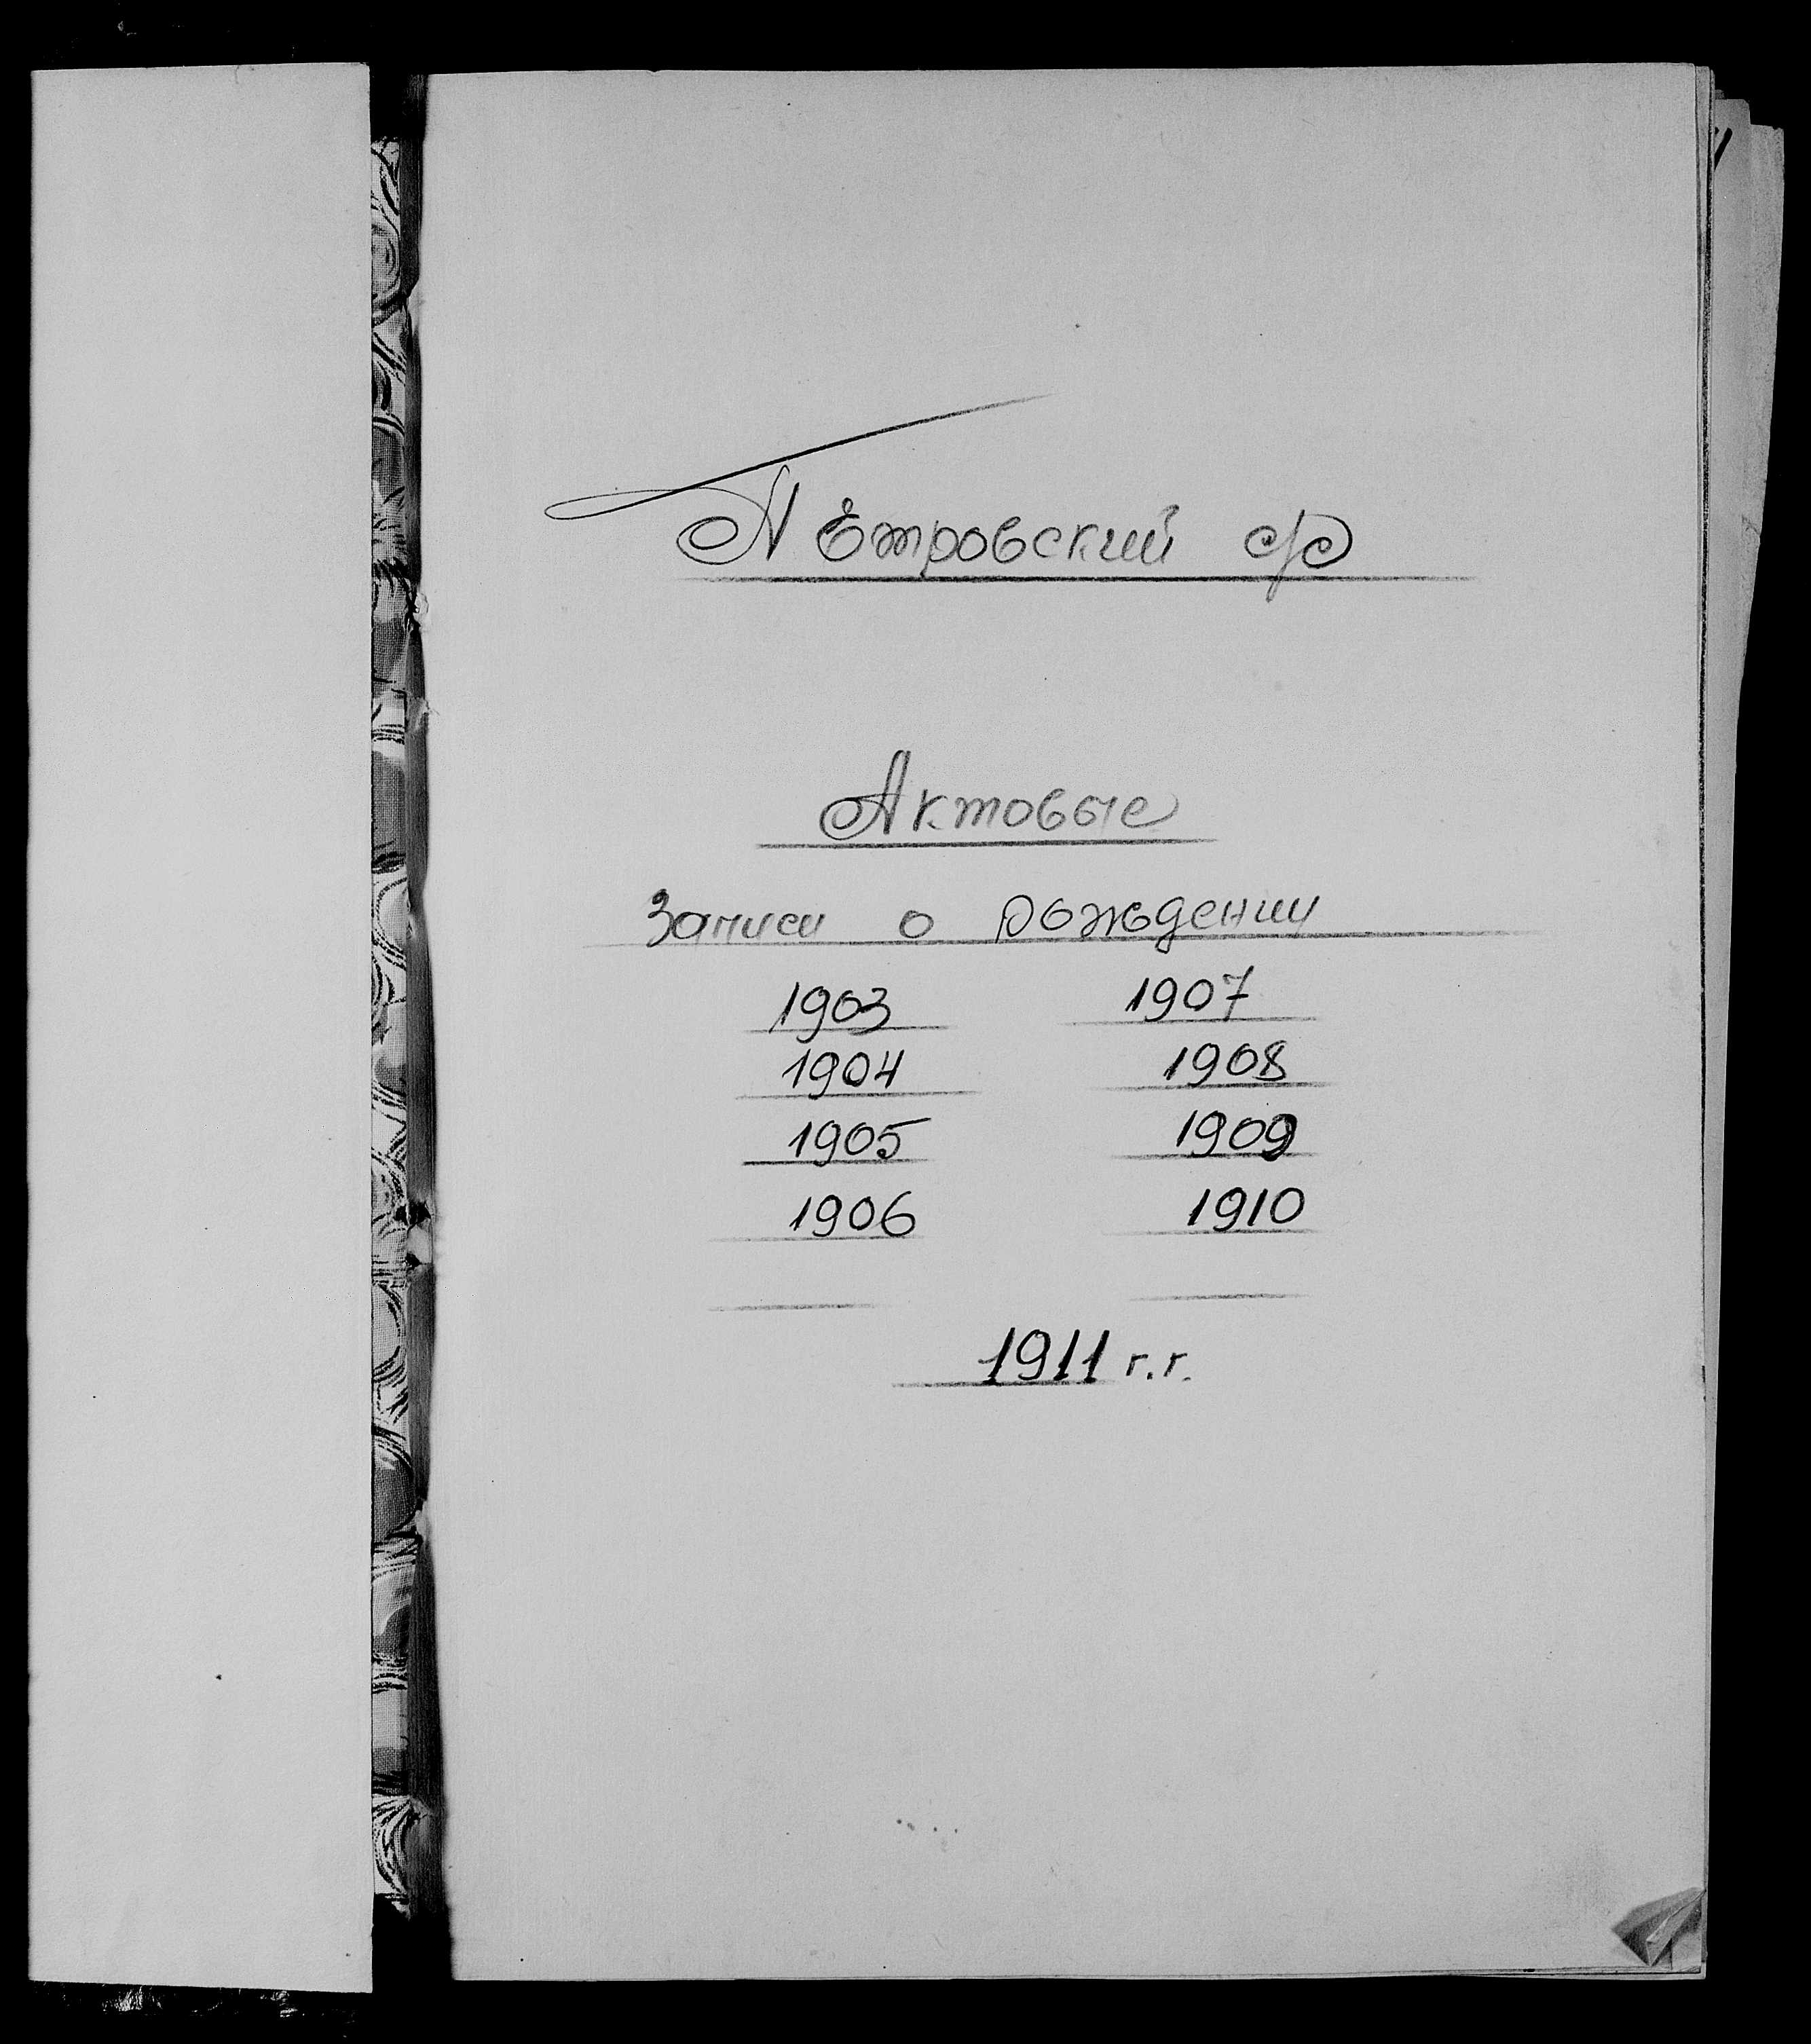 Петровский с/с
Актовые
Записи о рождении
1903 1907
1904 1908
1905 1909
1906 1910
1911 г.г.